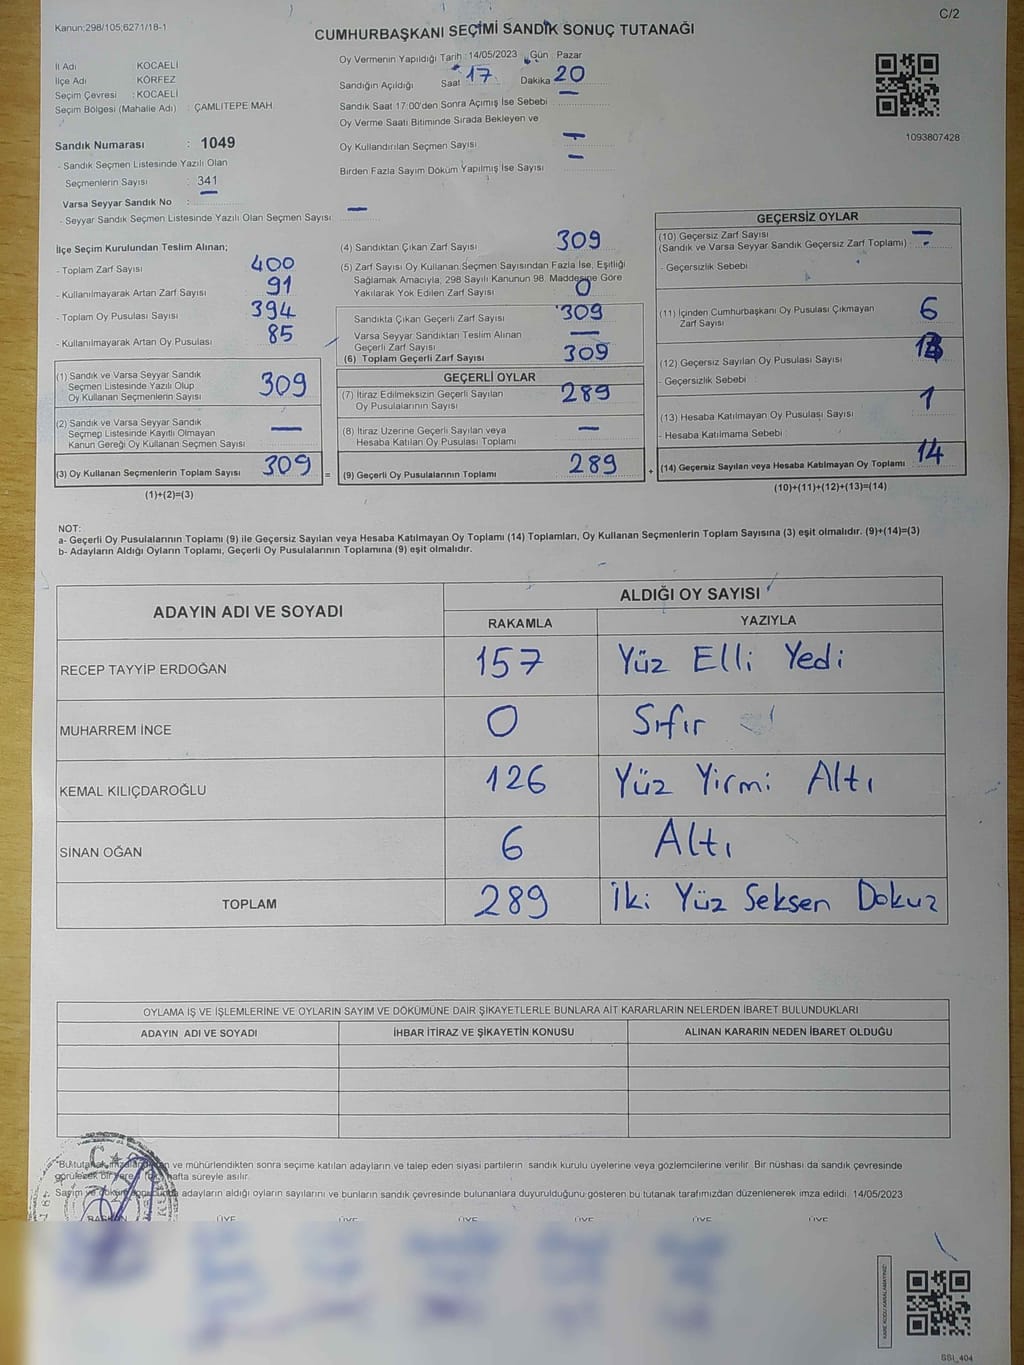 Kanun:298/105;6271/18-1
C/2
CUMHURBAŞKANI SEÇİMİ SANDIK SONUÇ TUTANAĞI
İl Adı KOCAELİ
İlçe Adı KÖRFEZ
Seçim Çevresi : KOCAELİ
Seçim Bölgesi (Mahalle Adı) : ÇAMLITEPE MAH.
Sandık Numarası : 1049
- Sandık Seçmen Listesinde Yazılı Olan
Seçmenlerin Sayısı : 341
Varsa Seyyar Sandık No : —
- Seyyar Sandık Seçmen Listesinde Yazılı Olan Seçmen Sayısı: —
Oy Vermenin Yapıldığı Tarih : 14/05/2023 Gün Pazar
Sandığın Açıldığı Saat 17 Dakika 20
Sandık Saat 17:00'den Sonra Açımış İse Sebebi —
Oy Verme Saati Bitiminde Sırada Bekleyen ve
Oy Kullandırılan Seçmen Sayısı —
Birden Fazla Sayım Döküm Yapılmış İse Sayısı —
1093807428
İlçe Seçim Kurulundan Teslim Alınan;
- Toplam Zarf Sayısı 400
- Kullanılmayarak Artan Zarf Sayısı 91
- Toplam Oy Pusulası Sayısı 394
- Kullanılmayarak Artan Oy Pusulası 85
(1) Sandık ve Varsa Seyyar Sandık
Seçmen Listesinde Yazılı Olup
Oy Kullanan Seçmenlerin Sayısı 309
(2) Sandık ve Varsa Seyyar Sandık
Seçmen Listesinde Kayıtlı Olmayan
Kanun Gereği Oy Kullanan Seçmen Sayısı —
(3) Oy Kullanan Seçmenlerin Toplam Sayısı 309
(1)+(2)=(3)
(4) Sandıktan Çıkan Zarf Sayısı 309
(5) Zarf Sayısı Oy Kullanan Seçmen Sayısından Fazla İse, Eşitliği
Sağlamak Amacıyla; 298 Sayılı Kanunun 98. Maddesine Göre
Yakılarak Yok Edilen Zarf Sayısı 0
Sandıkta Çıkan Geçerli Zarf Sayısı 309
Varsa Seyyar Sandıktan Teslim Alınan
Geçerli Zarf Sayısı —
(6) Toplam Geçerli Zarf Sayısı 309
GEÇERLİ OYLAR
(7) İtiraz Edilmeksizin Geçerli Sayılan
Oy Pusulalarının Sayısı 289
(8) İtiraz Üzerine Geçerli Sayılan veya
Hesaba Katılan Oy Pusulası Toplamı —
= (9) Geçerli Oy Pusulalarının Toplamı 289
GEÇERSİZ OYLAR
(10) Geçersiz Zarf Sayısı
(Sandık ve Varsa Seyyar Sandık Geçersiz Zarf Toplamı) : —
- Geçersizlik Sebebi
(11) İçinden Cumhurbaşkanı Oy Pusulası Çıkmayan
Zarf Sayısı 6
(12) Geçersiz Sayılan Oy Pusulası Sayısı
- Geçersizlik Sebebi
(13) Hesaba Katılmayan Oy Pusulası Sayısı 1
- Hesaba Katılmama Sebebi
+ (14) Geçersiz Sayılan veya Hesaba Katılmayan Oy Toplamı 14
(10)+(11)+(12)+(13)=(14)
NOT:
a- Geçerli Oy Pusulalarının Toplamı (9) ile Geçersiz Sayılan veya Hesaba Katılmayan Oy Toplamı (14) Toplamları, Oy Kullanan Seçmenlerin Toplam Sayısına (3) eşit olmalıdır. (9)+(14)=(3)
b- Adayların Aldığı Oyların Toplamı, Geçerli Oy Pusulalarının Toplamına (9) eşit olmalıdır.
ADAYIN ADI VE SOYADI ALDIĞI OY SAYISI
RAKAMLA YAZIYLA
RECEP TAYYİP ERDOĞAN 157 Yüz Elli Yedi
MUHARREM İNCE 0 Sıfır
KEMAL KILIÇDAROĞLU 126 Yüz Yirmi Altı
SİNAN OĞAN 6 Altı
TOPLAM 289 İki Yüz Seksen Dokuz
OYLAMA İŞ VE İŞLEMLERİNE VE OYLARIN SAYIM VE DÖKÜMÜNE DAİR ŞİKAYETLERLE BUNLARA AİT KARARLARIN NELERDEN İBARET BULUNDUKLARI
ADAYIN ADI VE SOYADI İHBAR İTİRAZ VE ŞİKAYETİN KONUSU ALINAN KARARIN NEDEN İBARET OLDUĞU
"Bu tutanak ve mühürlendikten sonra seçime katılan adayların ve talep eden siyasi partilerin sandık kurulu üyelerine veya gözlemcilerine verilir. Bir nüshası da sandık çevresinde
görülecek bir yere hafta süreyle asılır.
Sayım ve döküm adayların aldığı oyların sayılarını ve bunların sandık çevresinde bulunanlara duyurulduğunu gösteren bu tutanak tarafımızdan düzenlenerek imza edildi. 14/05/2023
BAŞKAN ÜYE ÜYE ÜYE ÜYE ÜYE ÜYE
SSI_404